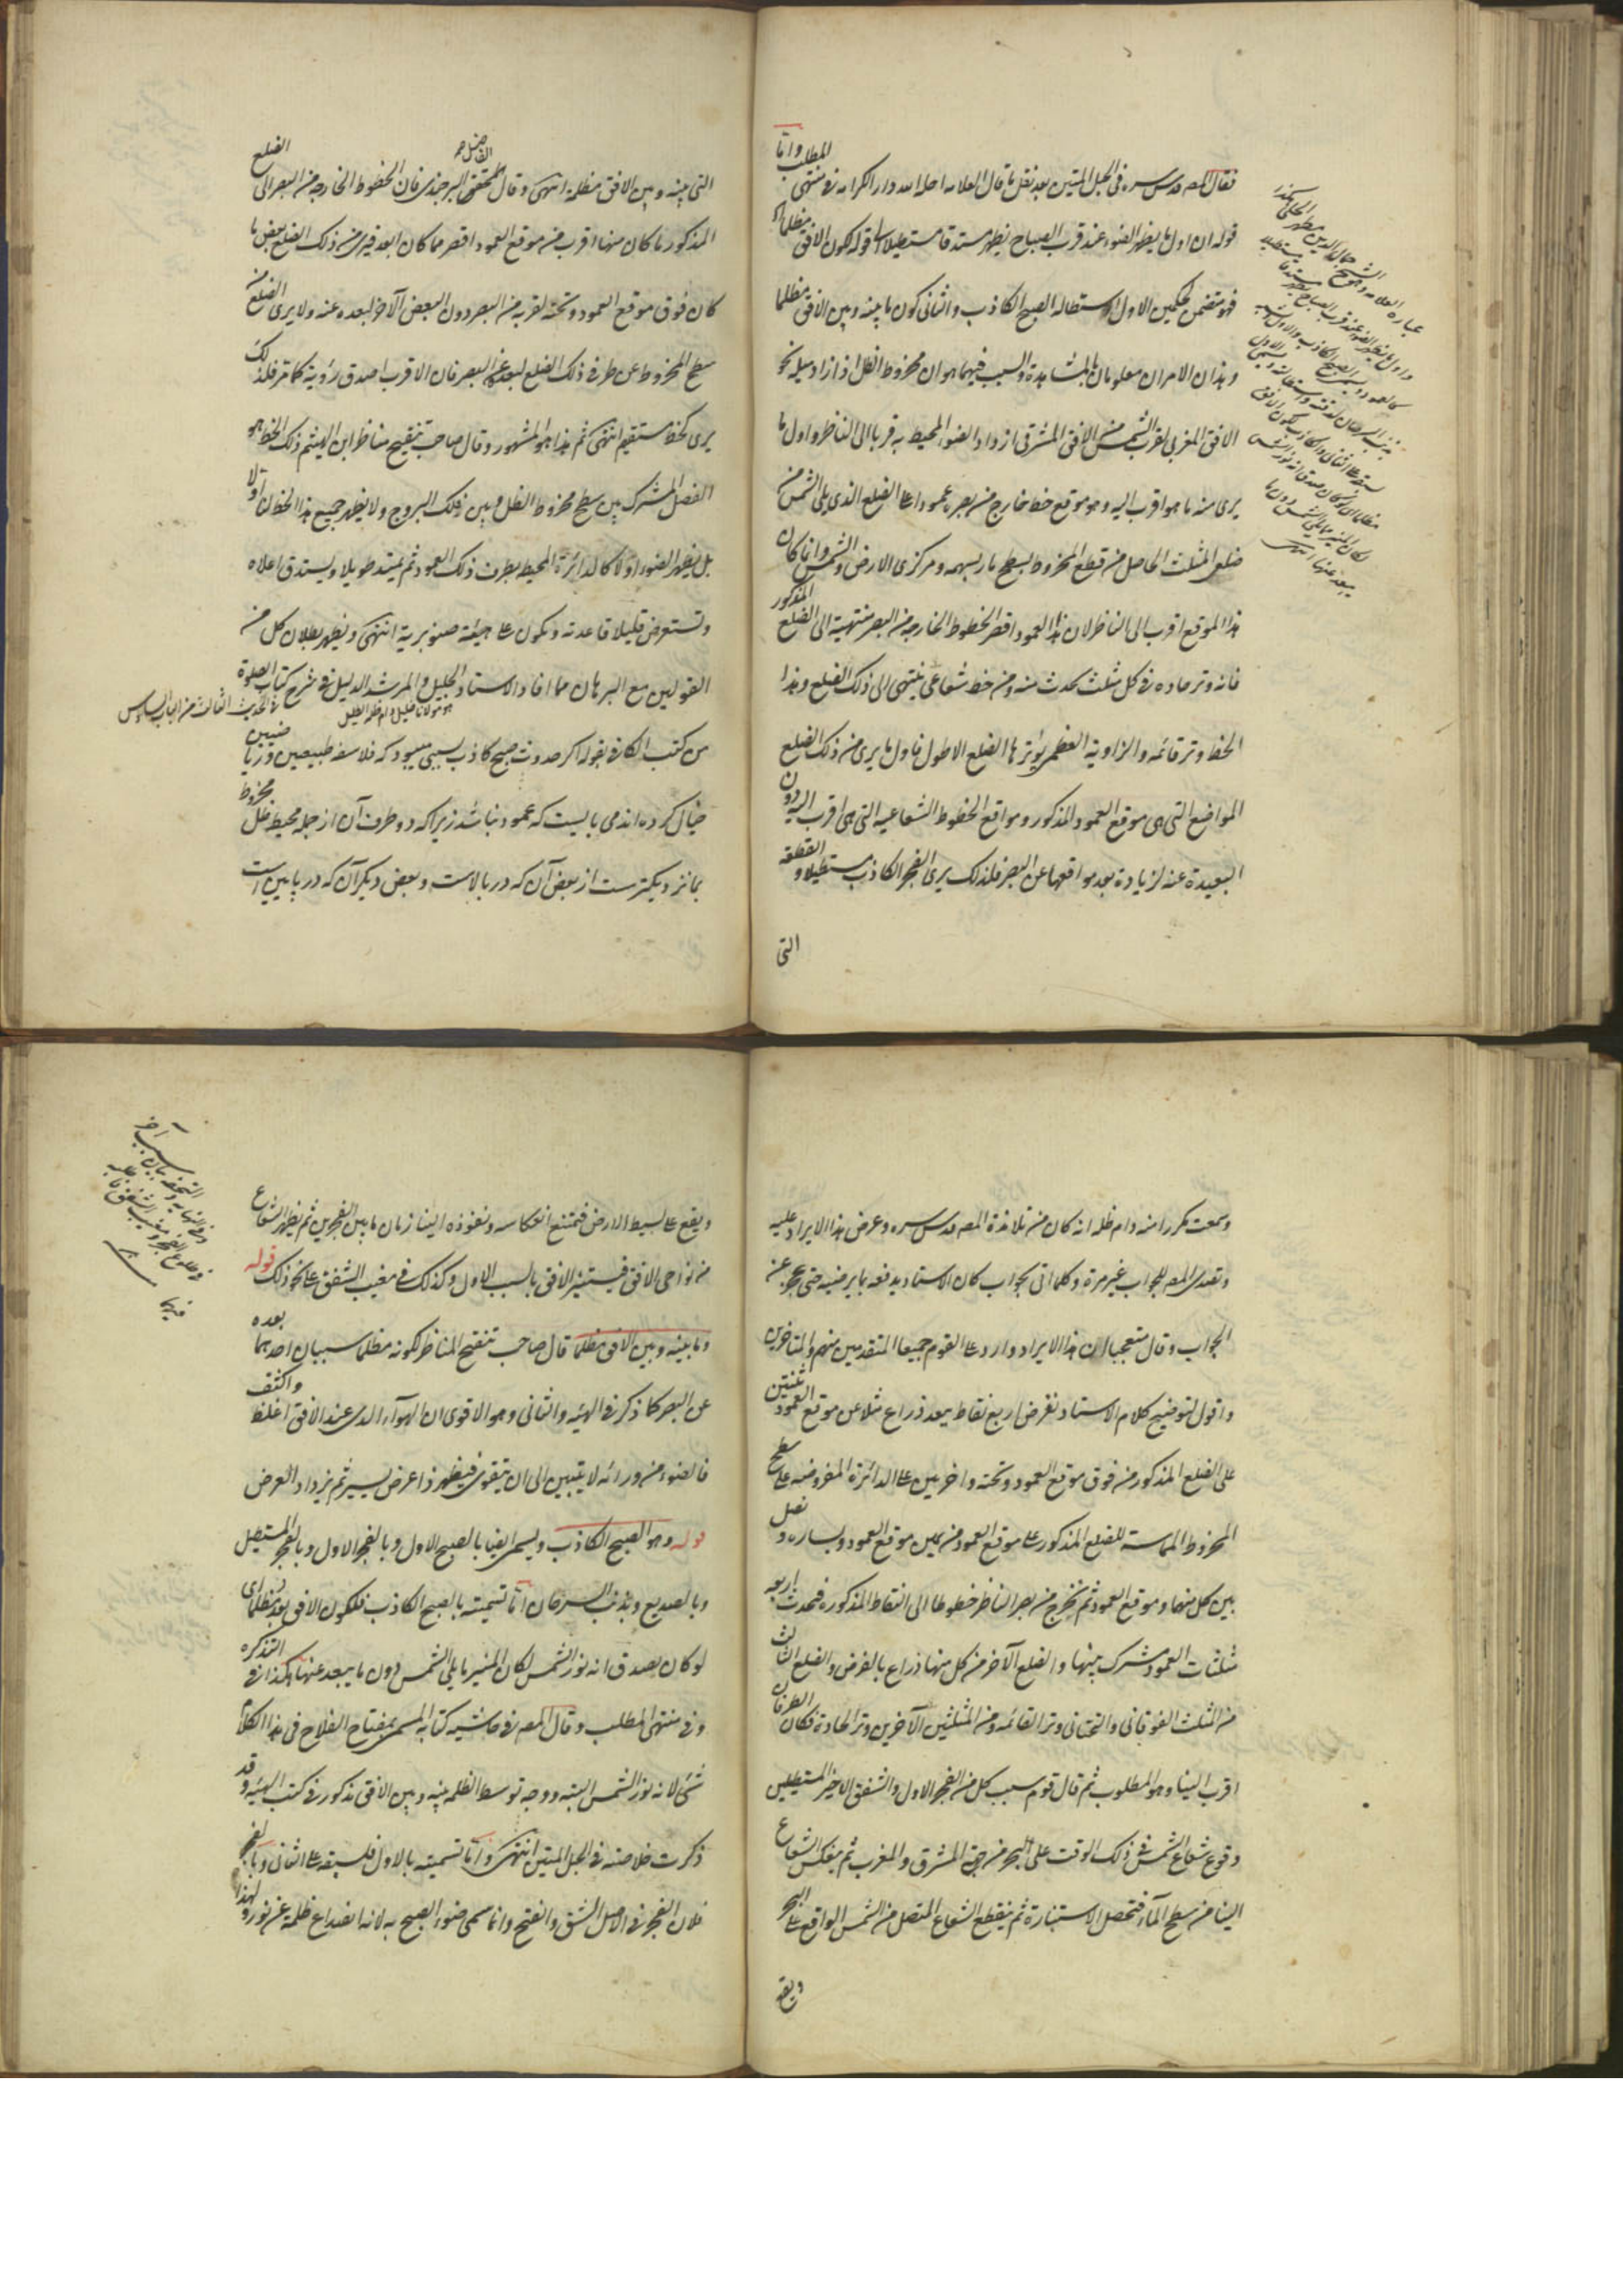 فقال المص قدس سره فى الحبل المتين بعد نقل ما قال العلامه احله الله دار الكرامه فى منتهى المطلب واما
قوله ان اول ما يظهر الضوء عند قرب الصباح يظهر مستدقا مستطيلا الى قوله لكون الافق مظلما
فهو متضمن لحكمين الاول استطاله الصبح الكاذب والثانى كون ما بينه وبين الافق مظلما
وهذان الامران معلومان بالمشاهدة والسبب فيهما هو ان مخروط الظل اذا زاد ميله نحو
الافق المغربى لقرب الشمس من الافق المشرقى ازداد الضوء المحيط به قربا الى الناظر واول ما
يرى منه ما هو اقرب اليه وهو موقع خط خارج من بصره عمودا على الضلع الذى يلى الشمس من
ضلعى المثلث الحاصل من قطع المخروط بسطح مار بسهمه ومركزى الارض والشمس وانما كان
هذا الموقع اقرب الى الناظر لان هذا العمود اقصر الخطوط الخارجه من البصر منتهية الى الضلع المذكور
فانه وتر حاده فى كل مثلث يحدث منه ومن خط شعاعى ينتهى الى ذلك الضلع وهذا
الخط وتر قائمه والزاوية العظمى يوترها الضلع الاطول فاول ما يرى من ذلك الضلع
المواضع التى هى موقع العمود المذكور ومواقع الخطوط الشعاعيه التى هى اقرب اليه دون
البعيدة عنه لزيادة بعد مواقعها عن البصر فلذلك يرى الفجر الكاذب مستطيلا و القطعة
التى
عباره العلامه
واول ما يظهر الضوء عند قرب الصباح يظهر مستدقا مستطيلا
كالعمود ويسمى الصبح الكاذب والاول
بذنب السرحان لدقته واستطالته ويسمى الاول
لسبقه على الثانى والكاذب لكون الافق
مظلما اى لو كان يصدق انه نور الشمس
لكان المنير مما يلى الشمس دون ما
يبعد عنها انتهى
التى بينه وبين الافق مظلمة انتهى وقال الفاضل المحقق البرجندى فان الخطوط الخارجه من البصر الى الضلع
المذكور ما كان منها اقرب من موقع العمود اقصر مما كان ابعد فيرى من ذلك الضلع بعض ما
كان فوق موقع العمود وتحته لقربه من البصر دون البعض الآخر لبعده عنه ولا يرى الضلع من
سطح المخروط عن طرفى ذلك الضلع لبعده عن البصر فان الاقرب اصدق رؤية كما مر فلذلك
يرى كخط مستقيم انتهى ثم هذا هو المشهور وقال صاحب تنقيح مناظر ابن الهيثم ذلك الخط هو
الفصل المشترك بين سطح مخروط الظل وبين فلك البروج ولا يظهر جميع هذا الخط اولا
بل يظهر الضوء اولا كالدائرة المحيط بطرف ذلك العمود ثم يمتد طويلا ويستدق اعلاه
وتستعرض قليلا قاعدته ويكون على هيئة صنوبرية انتهى ويظهر بطلان كل من
القولين مع البرهان مما افاد الاستاد الجليل والمرشد الدليل فى شرح كتاب الصلوة
هو مولانا خليل دام ظله الظليل
فى الحديث الثالث من الباب السادس
من كتب الكافى بقوله اكر حدوث صبح كاذب بسببى ميبود كه فلاسفه طبيعيين و رياضيين
خيال كرده اند مى بايست كه عمود نباشد زيرا كه دو طرف آن از جمله محيط ظل مخروط
بما نزديكترست از بعض آن كه در بالاست و بعض ديكر آن كه در پايين است
وسمعت مكررا منه دام ظله انه كان من تلامذة المص قدس سره وعرض هذا الايراد عليه
وتصدى المص للجواب غير مرة وكلما اتى بجواب كان الاستاد يدفعه بما يرضيه حتى عجز عن
الجواب وقال متعجبا ان هذا الايراد وارد على القوم جميعا المتقدمين منهم والمتاخرين
واقول لتوضيح كلام الاستاد نفرض اربع نقاط ببعد ذراع مثلا عن موقع العمود ثنتين
على الضلع المذكور من فوق موقع العمود وتحته واخريين على الدائرة المفروضه على سطح
المخروط المماسة للضلع المذكور على موقع العمود من يمين موقع العمود ويساره و نصل
بين كل منها وموقع العمود ثم نخرج من بصر الناظر خطوطا الى النقاط المذكوره فحدث اربعه
مثلثات العمود مشترك بينها والضلع الآخر من كل منها ذراع بالفرض والضلع الثالث
من المثلث الفوقانى والتحتانى وتر القائمه ومن المثلثين الآخرين وتر الحادة فكان الطرفان
اقرب الينا وهو المطلوب ثم قال قوم سبب كل من الفجر الاول والشفق الاخير المستطيلين
وقوع شعاع الشمس فى ذلك الوقت على البحر من جهتى المشرق والمغرب ثم ينعكس الشعاع
الينا من سطح الماء فتحصل الاستنارة ثم ينقطع الشعاع المتصل من الشمس الواقع على البحر
ويقع
ويقع على بسيط الارض فيمتنع انعكاسه ونفوذه الينا زمان ما بين الفجرين ثم يظهر الشعاع
من نواحى الافق فيستنير الافق بالسبب الاول وكذلك فى مغيب الشفق على نحو ذلك قوله
وما بينه وبين الافق مظلما قال صاحب تنقيح المناظر لكونه مظلما سببان احدهما بعده
عن البصر كما ذكر فى الهيئه والثانى وهو الاقوى ان الهواء الذى عند الافق اغلظ واكثف
فالضوء من ورائه لا يتبين الى ان يتقوى فيظهر ذا عرض يسير ثم يزداد العرض
قوله وهو الصبح الكاذب ويسمى ايضا بالصبح الاول وبالفجر الاول وبالفجر المستطيل
وبالصديع وبذنب السرحان اما تسميته بالصبح الكاذب فلكون الافق بعد مظلما اى
لو كان يصدق انه نور الشمس لكان المنير ما يلى الشمس دون ما يبعد عنها هكذا فى التذكره
وفى منتهى المطلب وقال المص فى حاشيه كتابه المسمى بمفتاح الفلاح فى هذا الكلام
شئ لانه نور الشمس البته ووجه توسط الظلمه بينه وبين الافق مذكور فى كتب الهيئه وقد
ذكرت خلاصته فى الحبل المتين انتهى واما تسميته بالاول فلسبقه على الثانى وبالفجر
فلان الفجر فى الاصل الشق والفتح وانما سمى ضوء الصبح به لانه انصداع ظلمة عن نور ولهذا